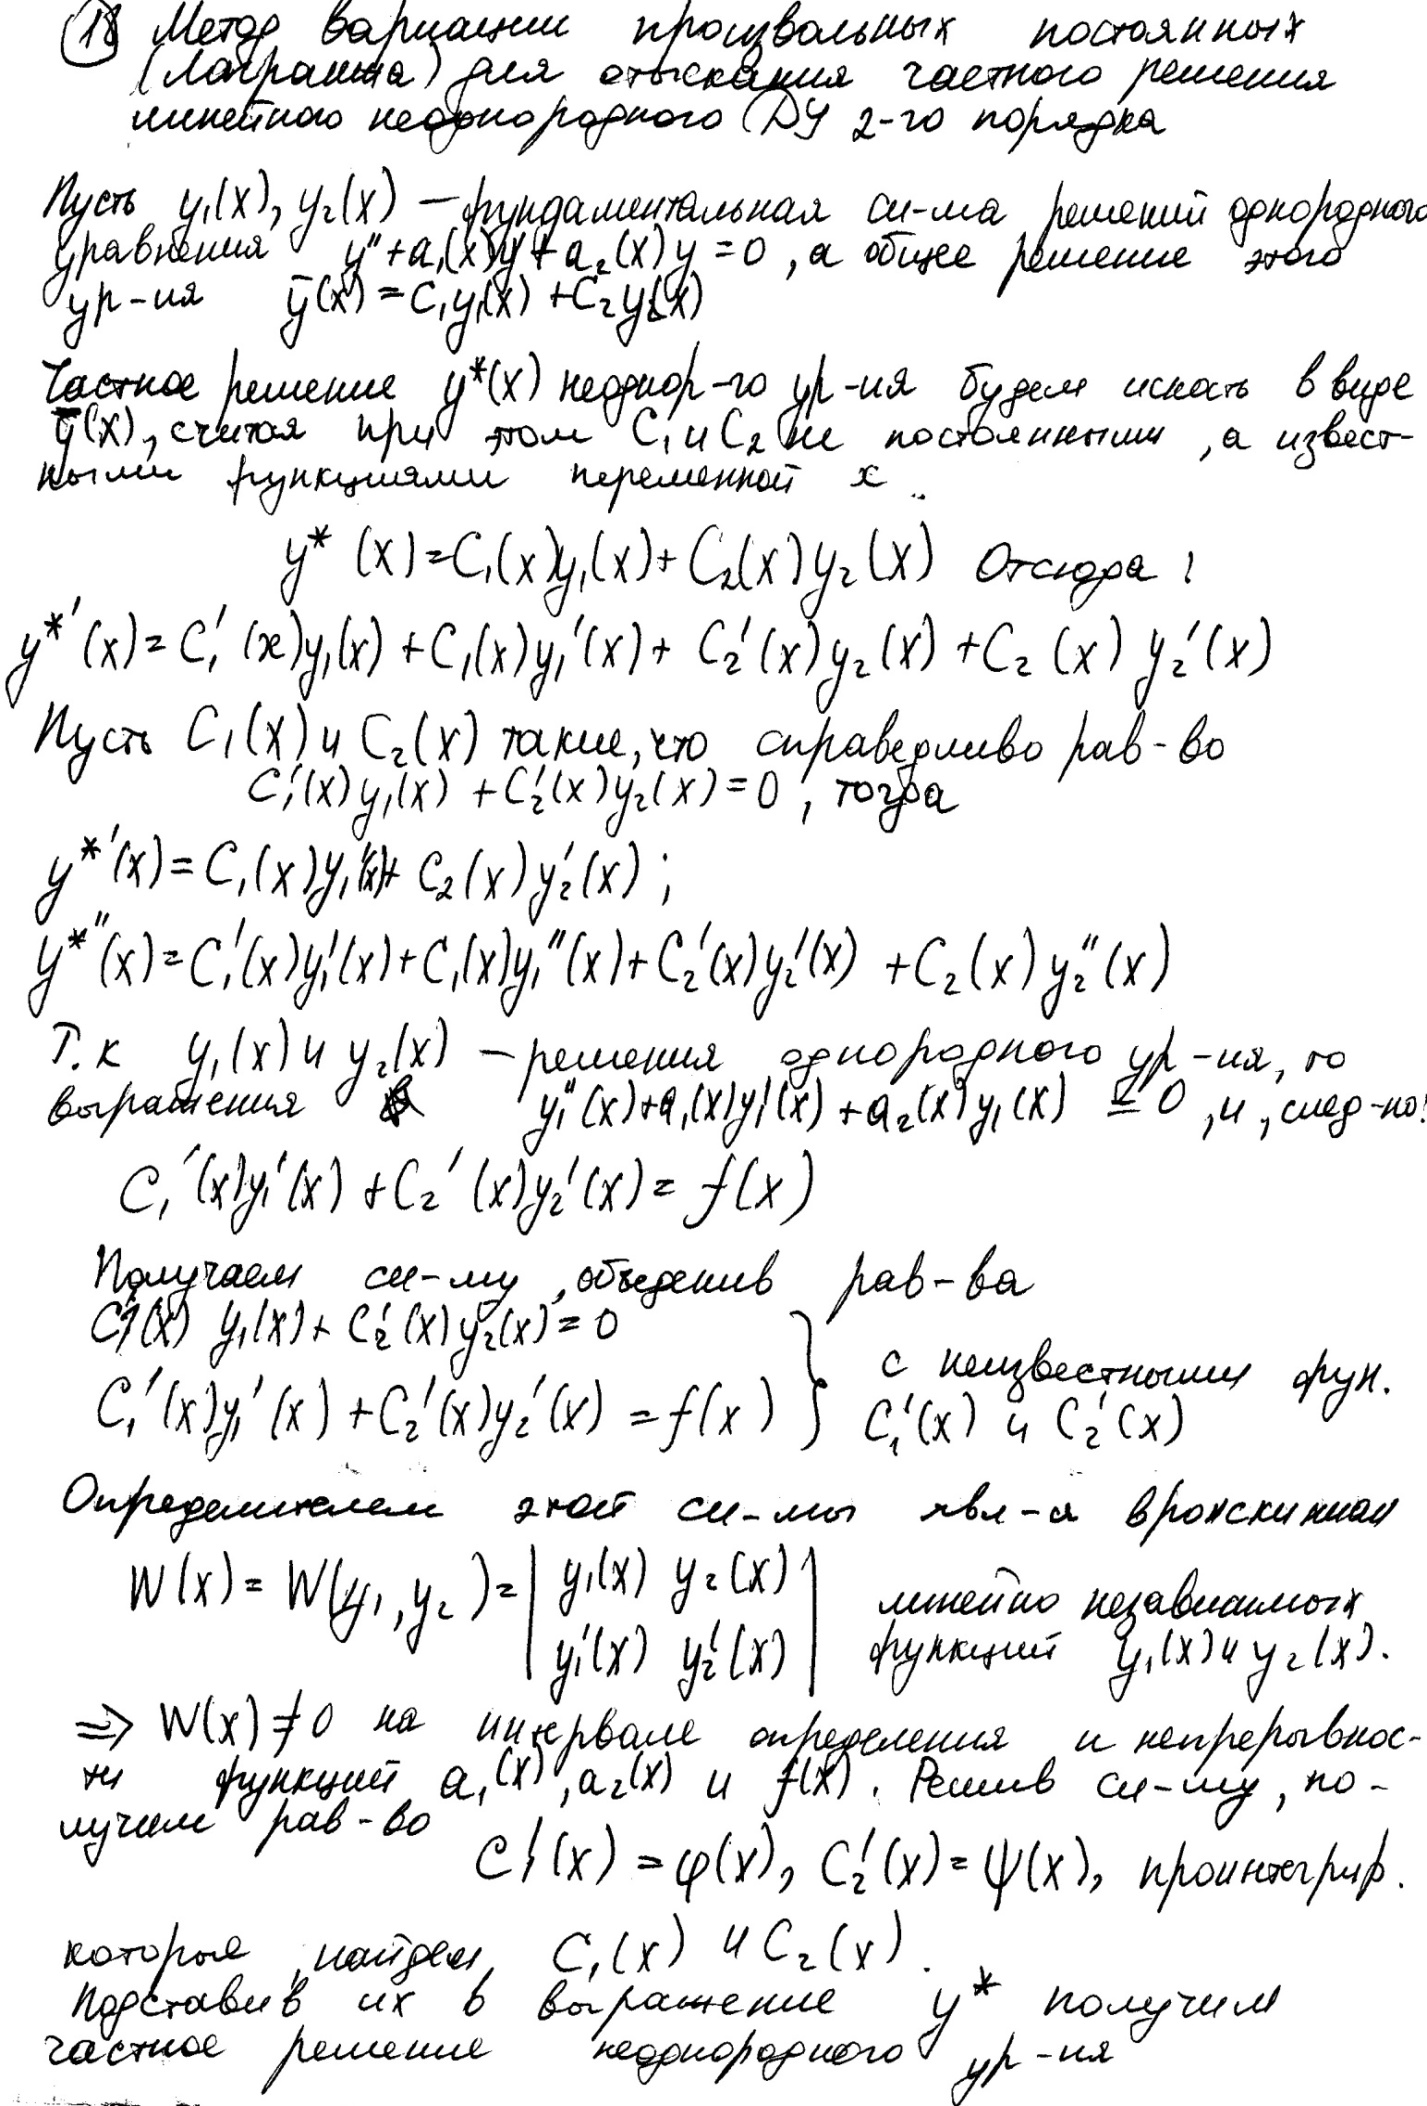 18 Метод вариации произвольных постоянных
(Лагранжа) для отыскания частного решения
линейного неоднородного ДУ 2-го порядка
Пусть y₁(x), y₂(x) — фундаментальная си-ма решений однородного
уравнения y''+a₁(x)y'+a₂(x)y=0, а общее решение этого
ур-ия ȳ(x)=C₁y₁(x)+C₂y₂(x)
Частное решение y*(x) неоднор-го ур-ия будем искать в виде
ȳ(x), считая при этом C₁ и C₂ не постоянными, а извест-
ными функциями переменной x
y*(x)=C₁(x)y₁(x)+C₂(x)y₂(x) Отсюда:
y*'(x)=C₁'(x)y₁(x)+C₁(x)y₁'(x)+C₂'(x)y₂(x)+C₂(x)y₂'(x)
Пусть C₁(x) и C₂(x) такие, что справедливо рав-во
C₁'(x)y₁(x)+C₂'(x)y₂(x)=0, тогда
y*'(x)=C₁(x)y₁'(x)+C₂(x)y₂'(x);
y*''(x)=C₁'(x)y₁'(x)+C₁(x)y₁''(x)+C₂'(x)y₂'(x)+C₂(x)y₂''(x)
Т.к y₁(x) и y₂(x) — решения однородного ур-ия, то
выражения y₁''(x)+a₁(x)y₁'(x)+a₂(x)y₁(x)=0, и, след-но:
C₁'(x)y₁'(x)+C₂'(x)y₂'(x)=f(x)
Получаем си-му, объеденив рав-ва
C₁'(x)y₁(x)+C₂'(x)y₂(x)=0
C₁'(x)y₁'(x)+C₂'(x)y₂'(x)=f(x) } с неизвестными фун.
C₁'(x) и C₂'(x)
Определителем этой си-мы явл-я вронскиннан
W(x)=W(y₁,y₂)=|y₁(x) y₂(x)| линейно независимых
|y₁'(x) y₂'(x)| функций y₁(x) и y₂(x).
=> W(x)≠0 на интервале определения и непрерывнос-
ти функций a₁(x), a₂(x) и f(x). Решив си-му, по-
лучим рав-во
C₁'(x)=φ(x), C₂'(x)=ψ(x), проинтегрир.
которые, найдем C₁(x) и C₂(x).
Подставив их в выражение y* получим
частное решение неоднородного ур-ия